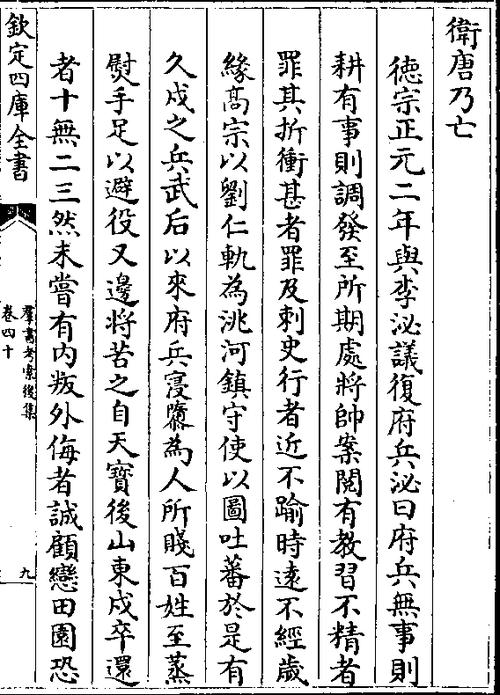 衛唐乃亡
德宗正元二年與李泌議復府兵泌曰府兵無事則
耕有事則調發至所期處將帥案閲有教習不精者
罪其折衝甚者罪及刺史行者近不踰時遠不經歲
緣髙宗以劉仁軌為洮河鎮守使以圖吐蕃於是有
久戍之兵武后以來府兵寖隳為人所賤百姓至蒸
熨手足以避役又邊將苦之自天寶後山東戍卒還
者十無二三然未嘗有内叛外侮者誠顧戀田園恐
欽定四庫全書
羣書考索後集
卷四十
九